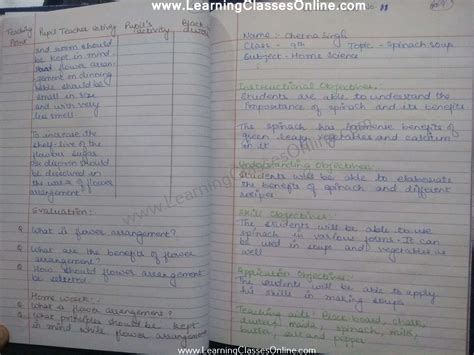 www.LearningClassesOnline.com
Teaching Point
Pupil Teacher activity
Pupil's activity
Black
and room should
be kept in mind
flower arran-
gement on dinning
table should be
small in size
and with very
less smell.
To increase the
shelf-life of the
flower sugar
or disprin should
be dissolved in
the water of flower
arrangement.
Evaluation:
Q What is flower arrangement?
Q What are the benefits of flower
arrangement?
Q How should flower arrangement
be selected
Home work:-
Q What is flower arrangement?
Q What principles should be kept
in mind while flower arrangement
Name:-
Class - 9th Topic - Spinach soup
Subject - Home Science
Instructional Objectives:
Students are able to understand the
importance of spinach and its benefits
The spinach has immense benefits of
green leafy vegetables and calcium
in it
Understanding Objectives:
Students will be able to elaborate
the benefits of spinach and different
recipes.
Skill Objectives:
The students will be able to use
spinach in various forms. It can
be used in soups and vegetables as
well
Application Objectives:
The students will be able to apply
his skills in making soups
Teaching aids: Black board, chalk,
spinach, milk,
butter, salt and pepper
www.LearningClassesOnline.com
www.LearningClassesOnline.com